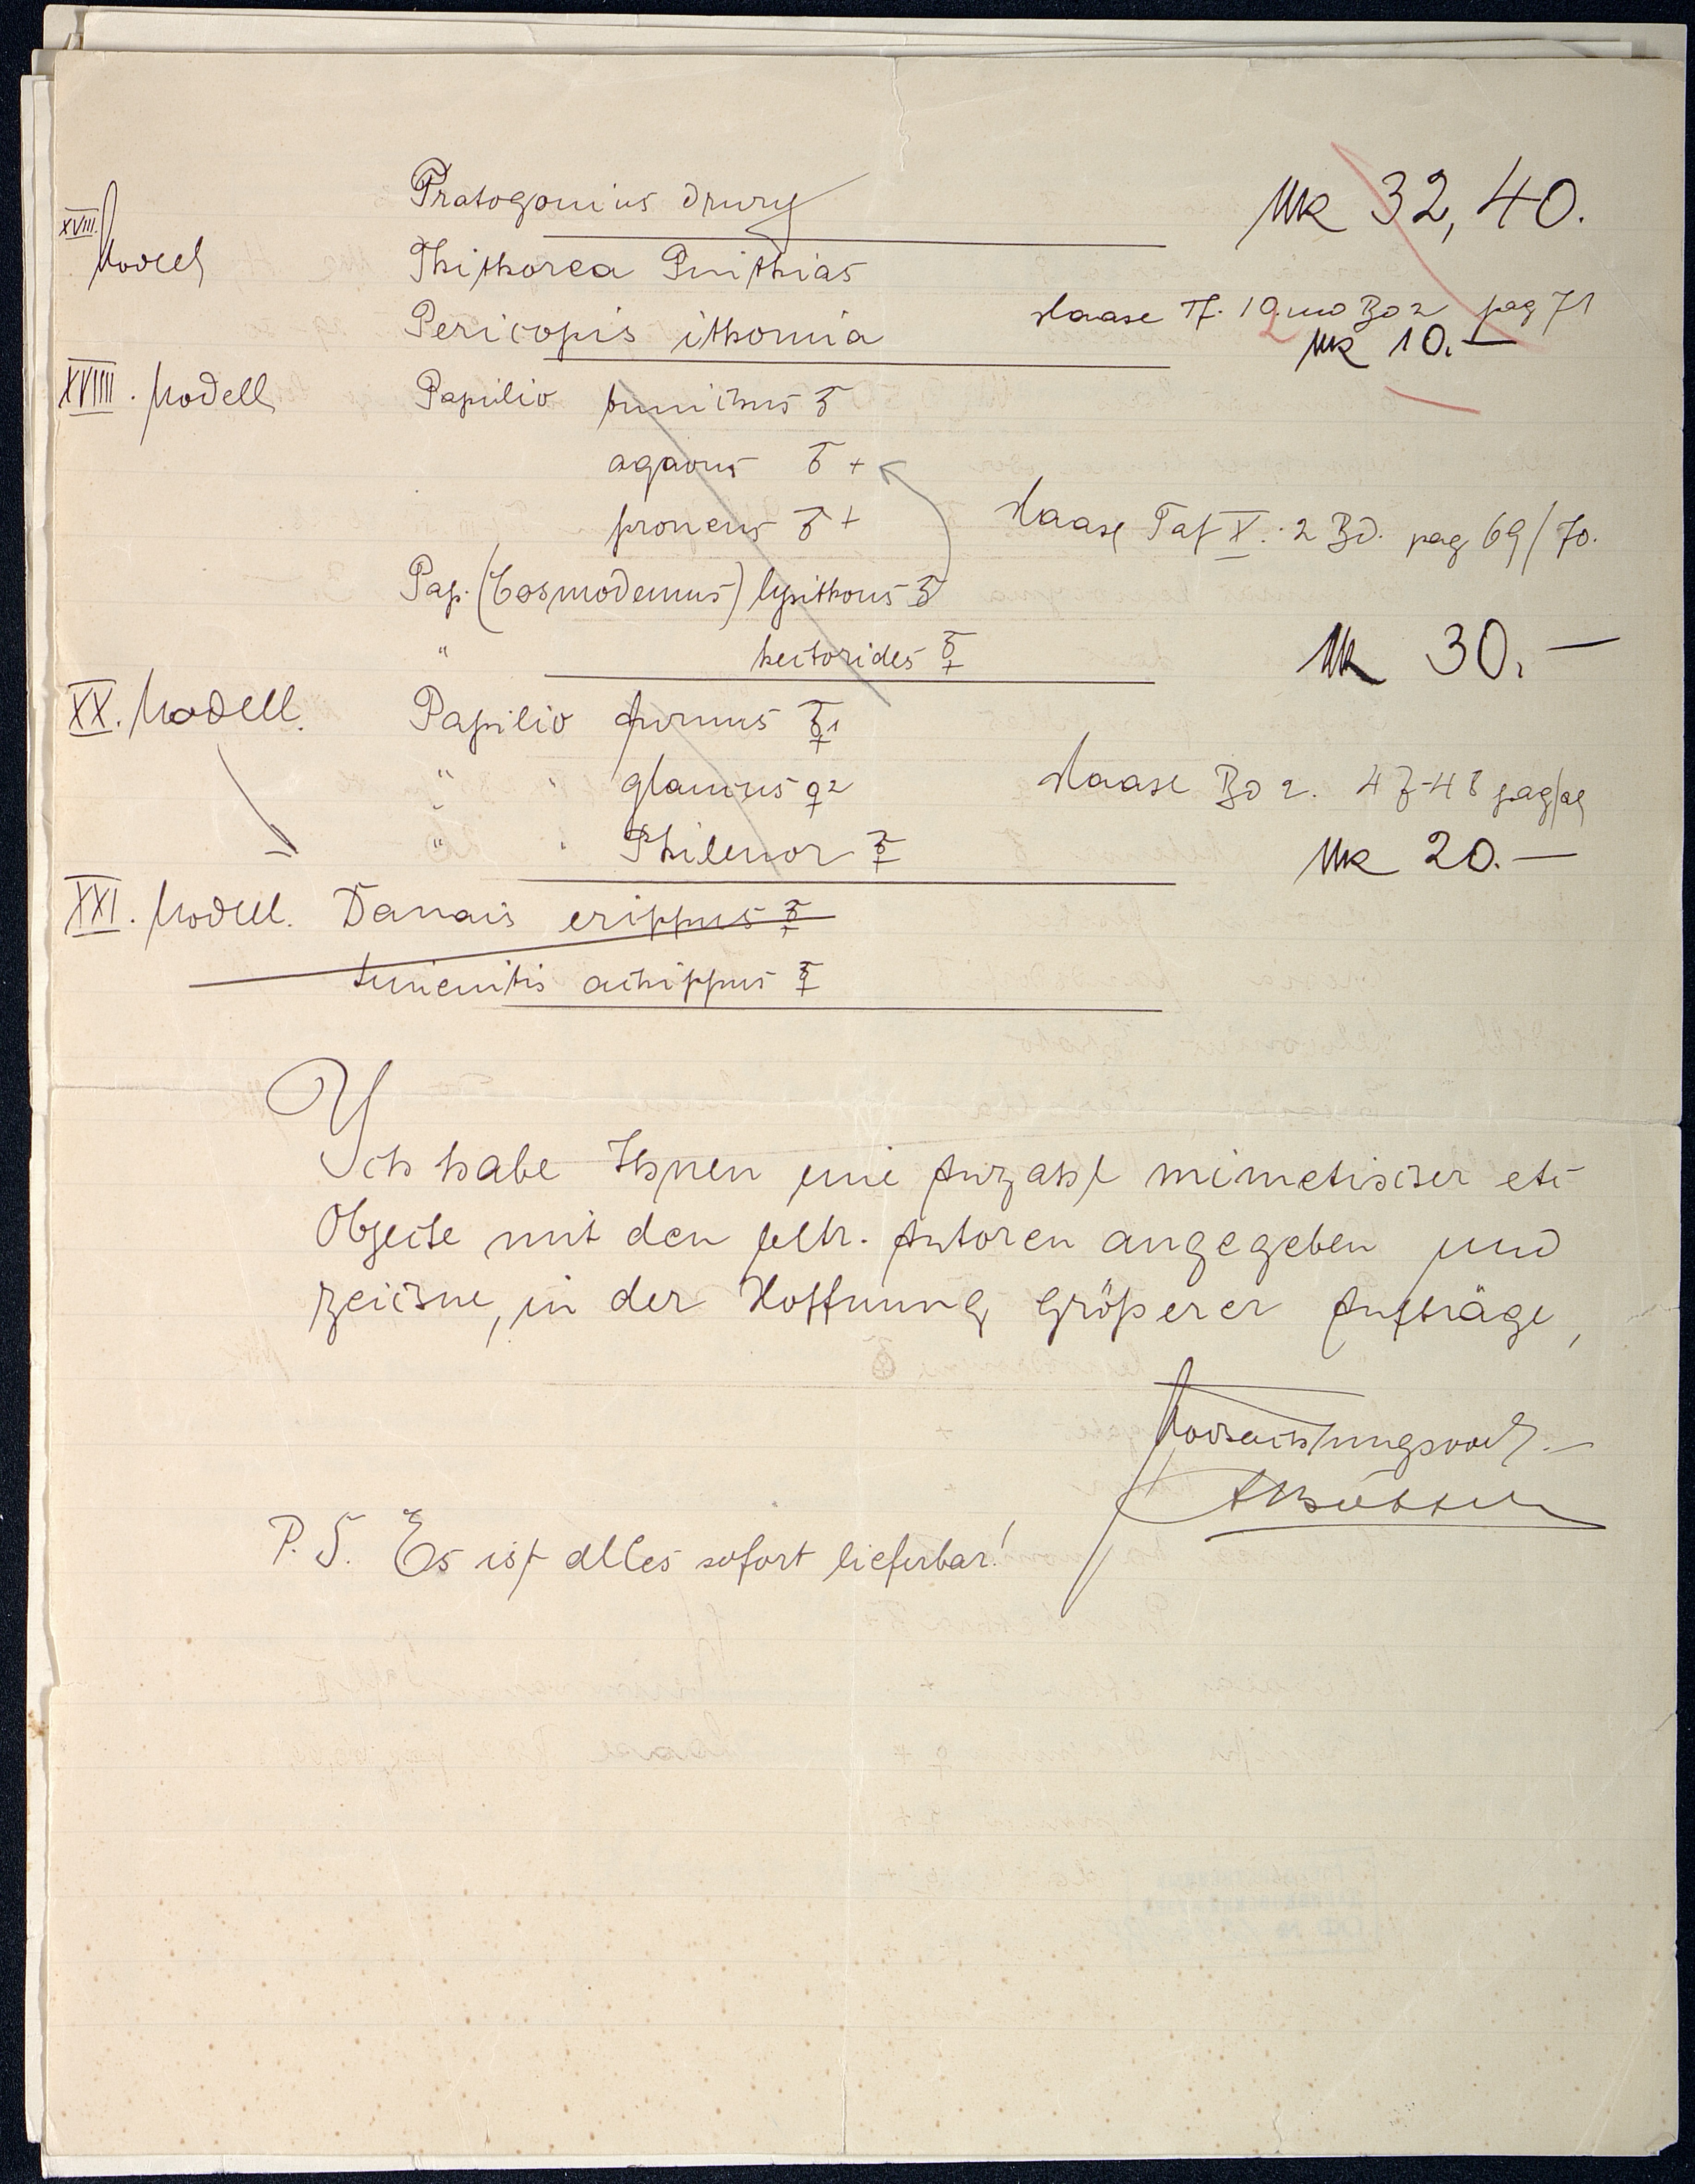 Protogonius drury
Mk 32,40.
XVIII. Modell
Thithorea Pinthias
Pericopis ithomia
Haase Tf. 10 und Bd 2 pag 71
Mk 10.—
XVIIII. Modell Papilio bunichus ♂
agavus ♂ +
proneus ♂ +
Haase Taf X. 2 Bd. pag 69/70.
Pap. (Cosmodemus) lysithous ♂
" hectorides ♂♀
Mk 30.—
XX. Modell. Papilio turnus ♂♀1
" " glaucus ♀2
Haase Bd 2. 47-48 pag
" " Philenor ♂♀
Mk 20.—
XXI. Modell. Danais erippus ♂♀
Limenitis archippus ♂♀
Ich habe Ihnen eine Anzahl mimetischer etc
Objecte mit den betr. Autoren angegeben und
zeichne, in der Hoffnung größerer Aufträge,
Hochachtungsvoll.—
P. S. Es ist alles sofort lieferbar!